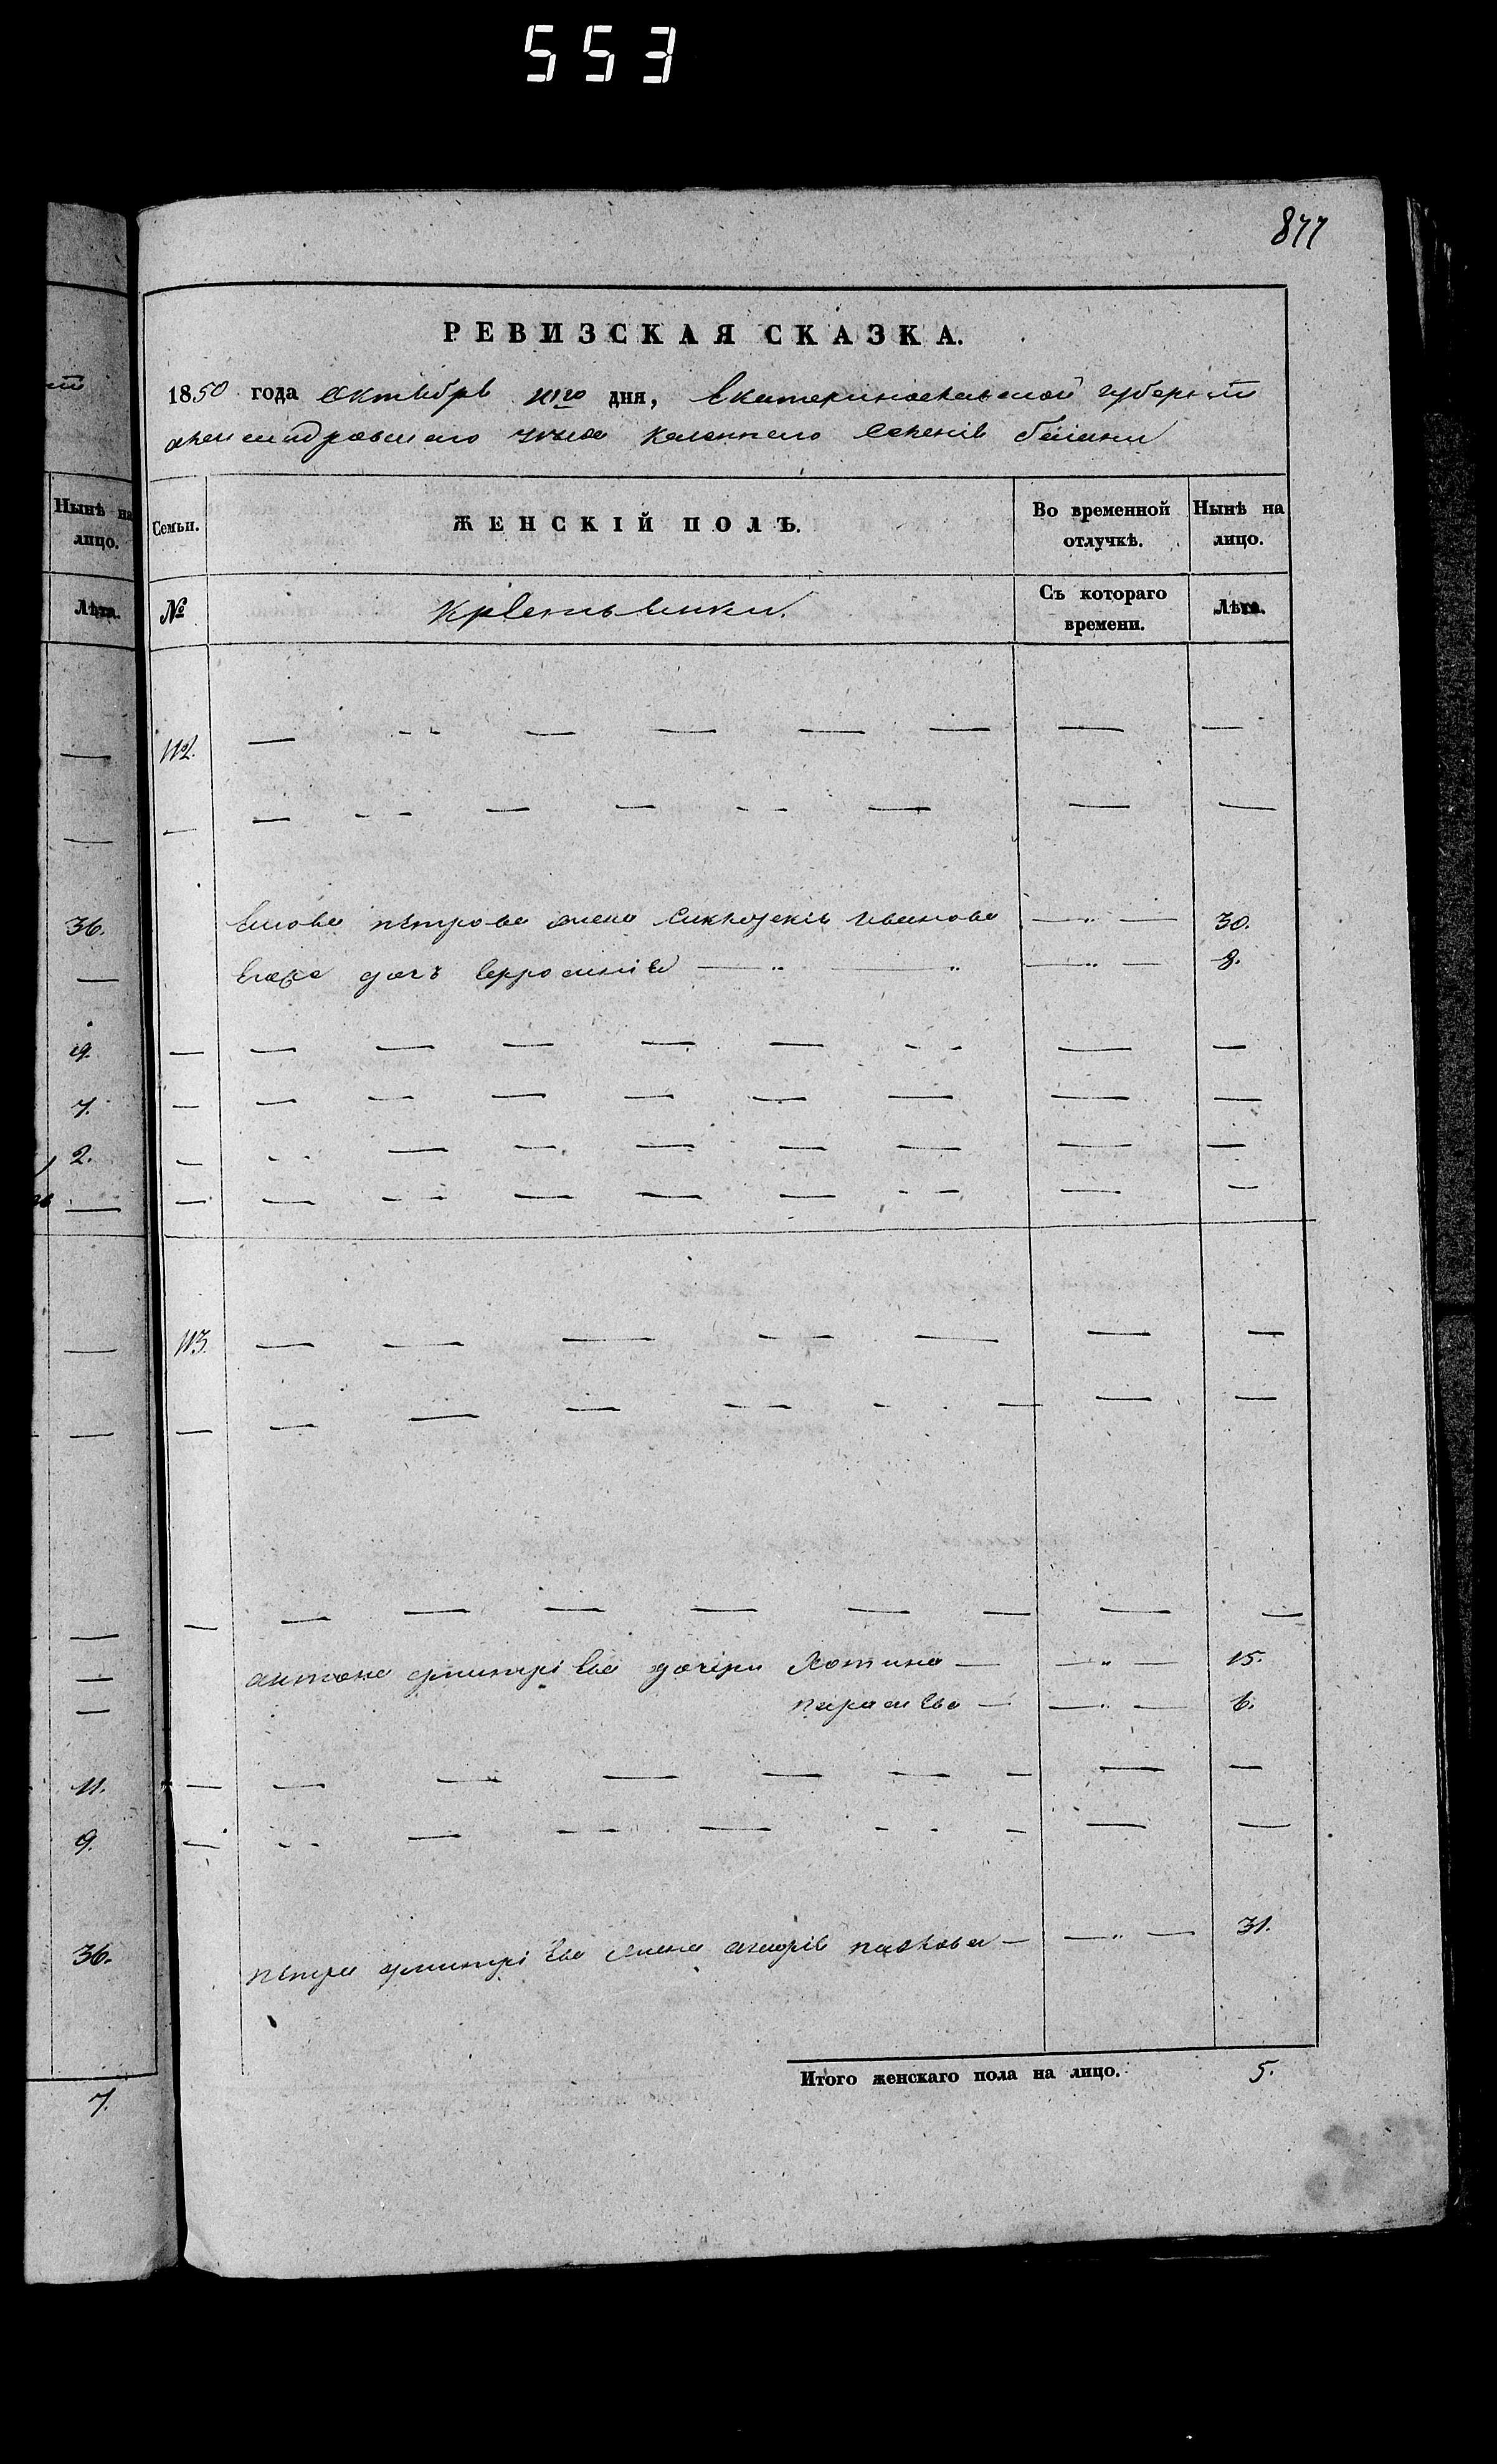 553
877
РЕВИЗСКАЯ СКАЗКА.
1850 года Октября дня, Екатеринославской губернии
Александровскаго уезда казеннаго селенія
Нынѣ на лицо.
Семьи.
ЖЕНСКІЙ ПОЛЪ.
Во временной отлучкѣ.
Нынѣ на лицо.
Лѣта.
№
Крестьянки.
Съ котораго времени.
Лѣта.
112.
36.
Якова Петрова жена Иванова 30.
Егоже дочь Ефросинія 8.
19.
7.
2.
113.
Антона Дмитріева дочери 15.
Параскева 6.
11.
9.
36.
Петра Дмитріева жена Павлова 31.
Итого женскаго пола на лицо. 5.
7.